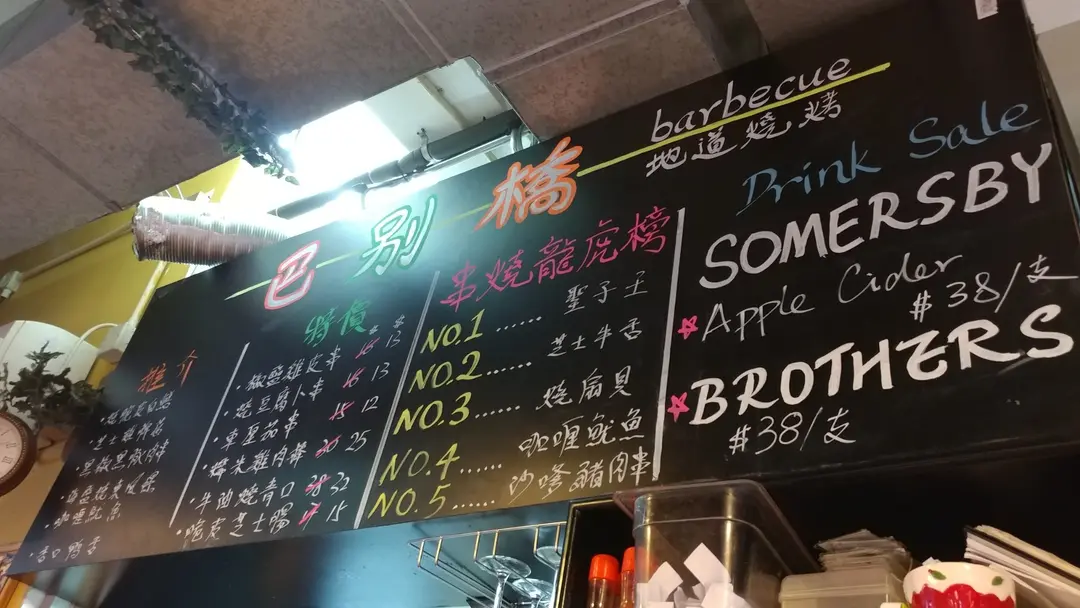 巴别橋
barbecue
地道燒烤
推介
芝士雞髀菇
黑椒黑豚肉串
咖喱魷魚
香口鴨舌
特價
$ $
・椒鹽雞皮串 16 13
・燒豆腐卜串 16 13
・車厘茄串 15 12
・糯米雞肉棒 30 25
・牛油燒青口 38 32
・脆皮芝士腸 17 15
串燒龍虎榜
NO.1 ...... 聖子王
NO.2 ...... 芝士牛舌
NO.3 ...... 燒扇貝
NO.4 ...... 咖喱魷魚
NO.5 ..... 沙嗲豬肉串
Drink Sale
SOMERSBY
Apple Cider
$38/支
BROTHERS
$38/支